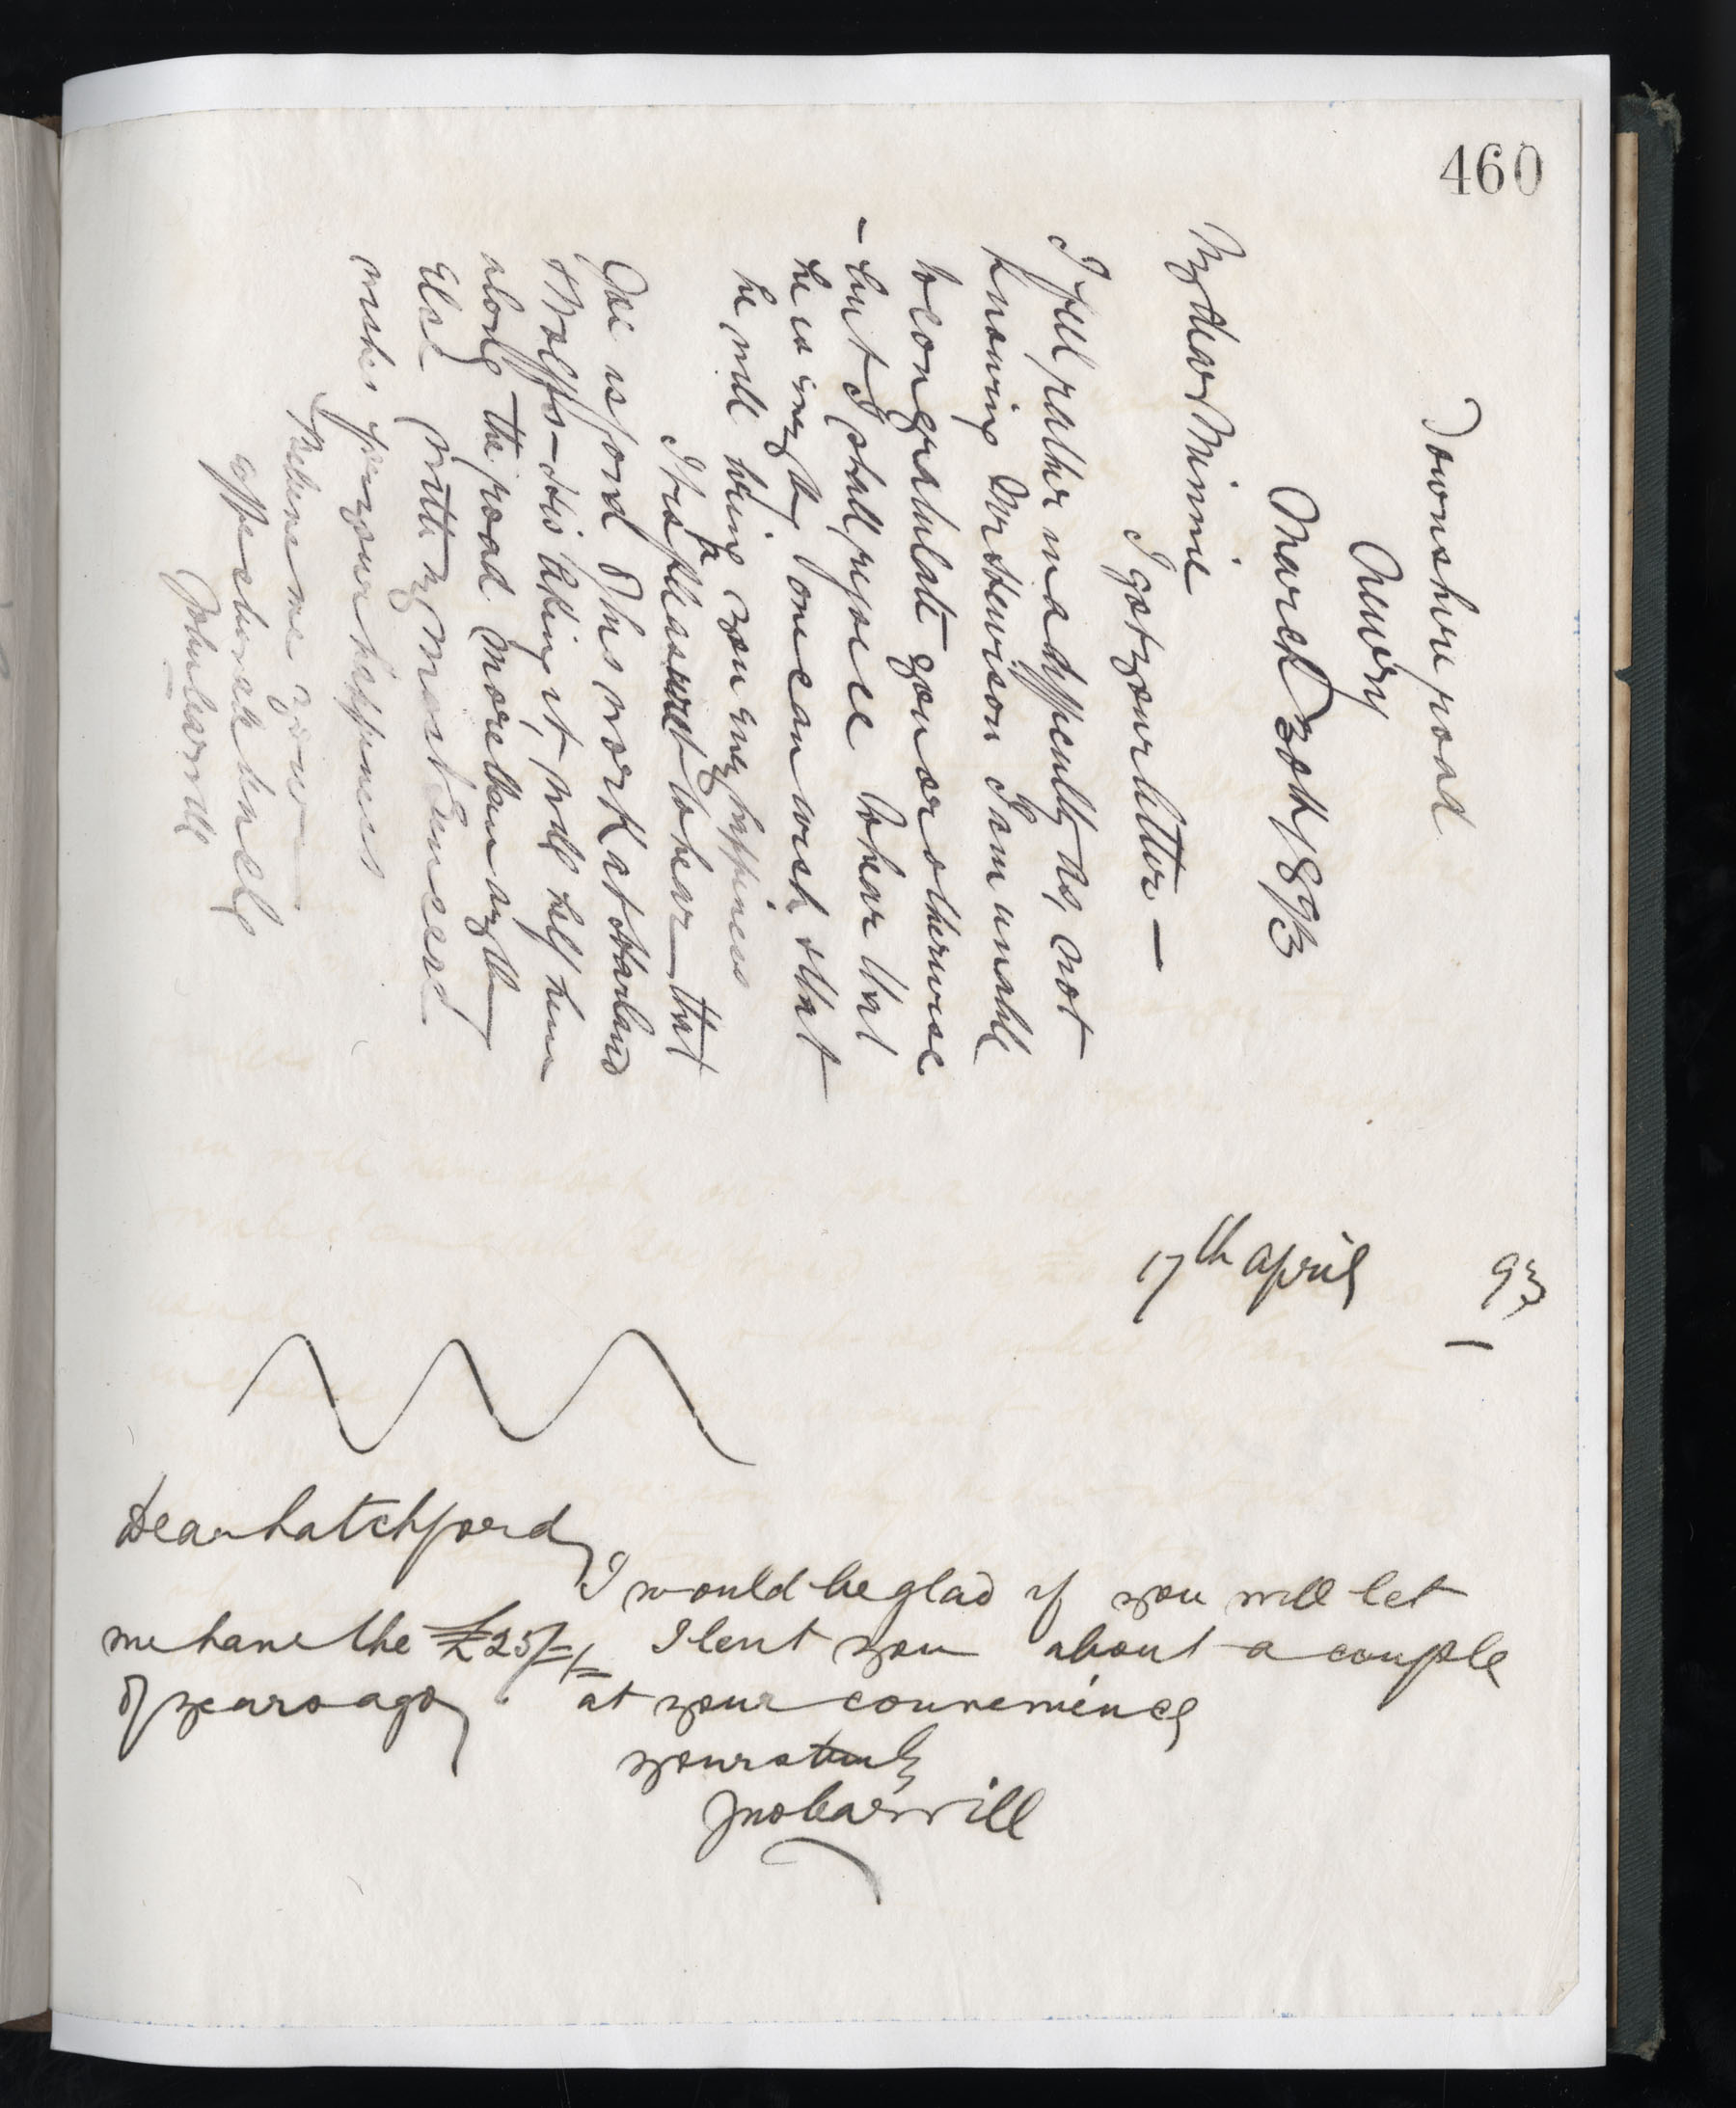 460
Downshire road
Newry
March 30th, 1893
My dear Minnie
I got your letter —
I feel rather in a difficulty as, not
knowing Mr Hewison I am unable
to congratulate you or otherwise
- but I shall rejoice to hear that
he is every thing one can wish & that
he will bring you every happiness
It is pleasant to hear that
Joe is fond of his work at Harland
& Wolffs - His liking it, will help him
along the road more than anything
Else With my most Sincere
wishes for your happiness
Believe me your
affectionate Uncle
John Carvill
17th april 93
Dear Latchford
I would be glad if you will let
me have the £25/-/- I lent you about a couple
of years ago, at your convenience
yours truly
Jno Carvill